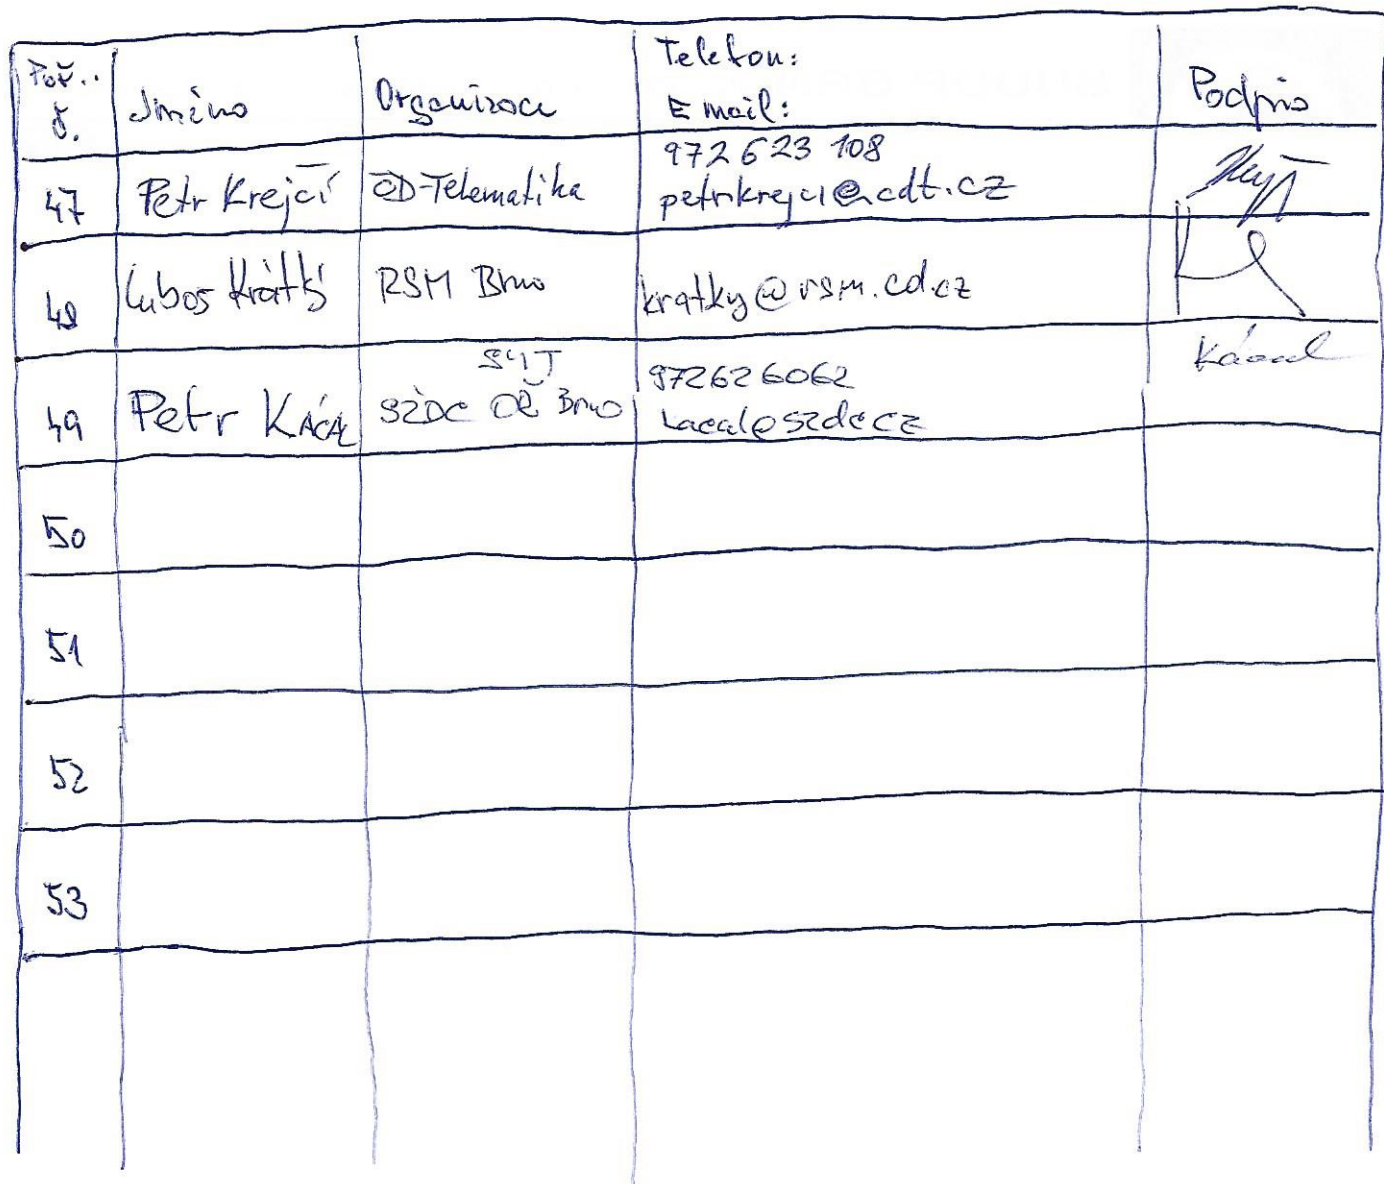 Poř. č. Jméno Organizace Telefon: E mail: Podpis
47 Petr Krejčí ČD-Telematika 972 623 108 petr.krejci@cdt.cz
48 Luboš Krátký RSM Brno kratky@rsm.cd.cz
49 Petr Kácal SŽDC OŘ Brno 972626062 kacal@szdc.cz Kácal
50
51
52
53